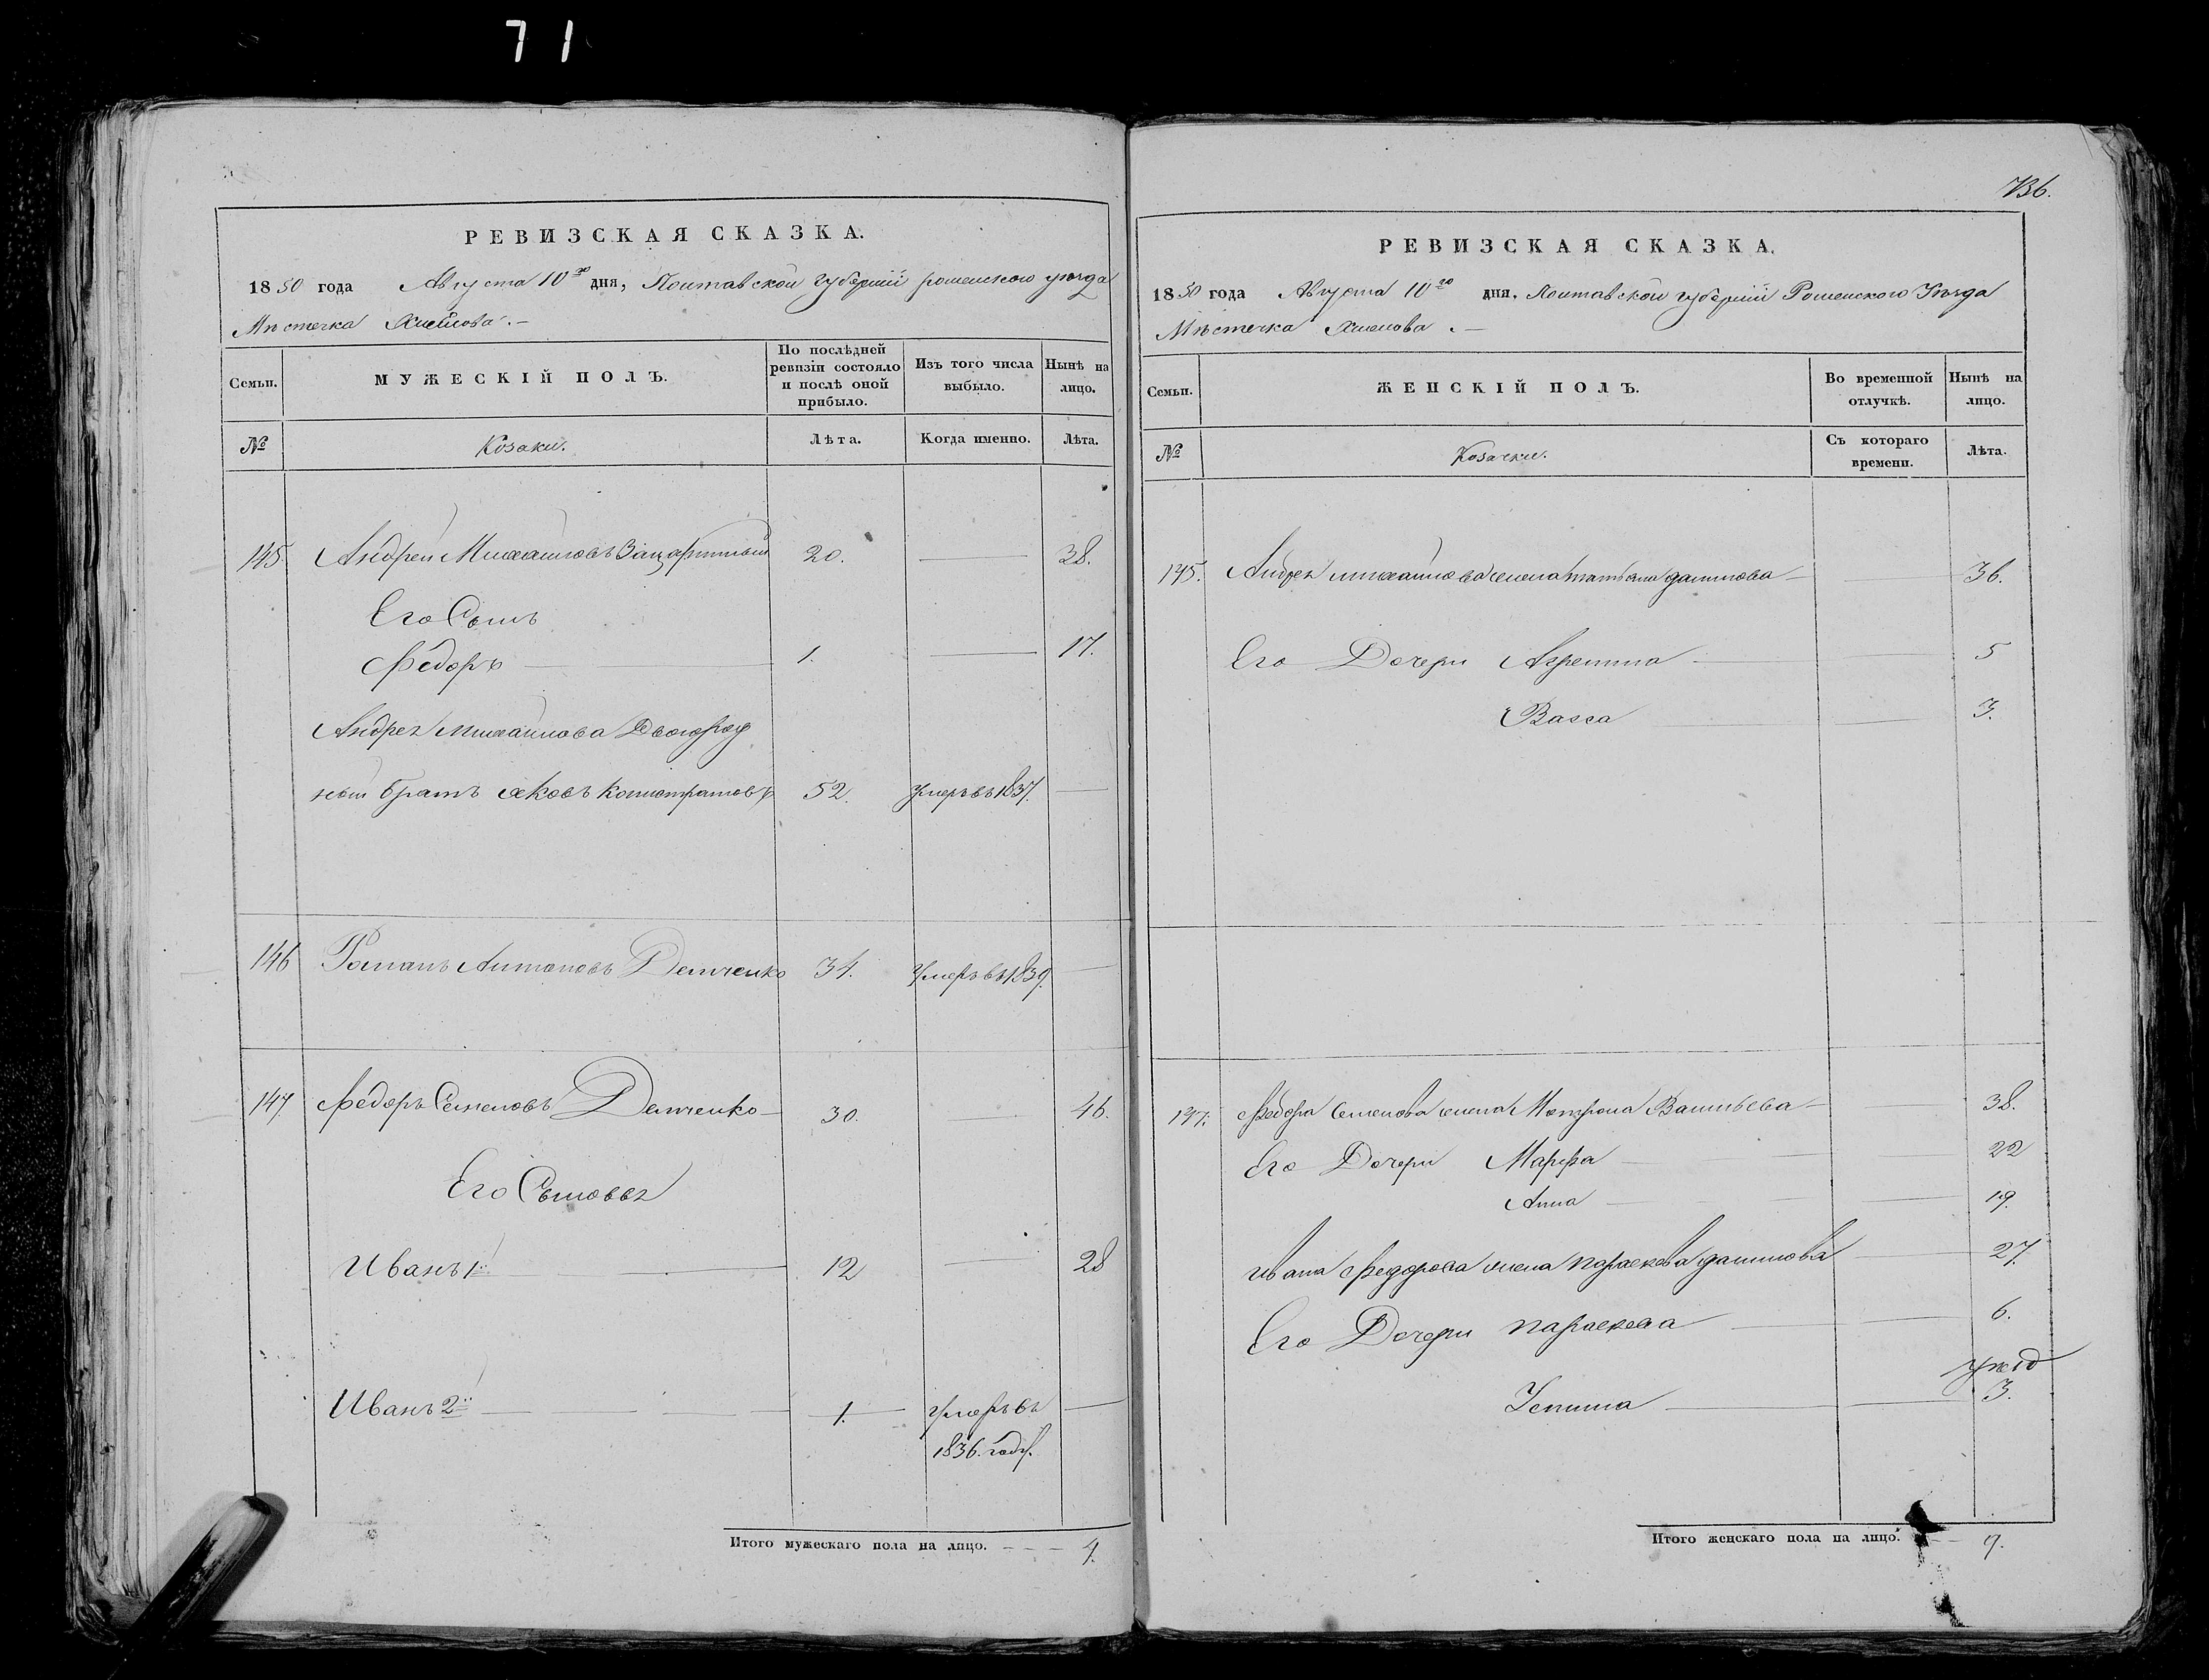 71
РЕВИЗСКАЯ СКАЗКА.
1850 года Августа 10го дня, Полтавской губернии роменского уезда
Местечка Хмелова.—
Семьи.
МУЖЕСКІЙ ПОЛЪ.
По послѣдней ревизіи состояло и послѣ оной прибыло.
Изъ того числа выбыло.
Нынѣ на лицо.
№
Козаки.
Лѣта.
Когда именно.
Лѣта.
145. Андрей Михайловъ 20. — 38.
Его Сынъ
Федоръ — 1. — 17.
Андрея михайлова Двоюрод
ный братъ яковъ 52. умеръ въ 1837. —
146 Романъ Антоновъ Демченко 34. Умеръ въ 1839. —
147 Федоръ Семеновъ Демченко — 30. — 46.
Его Сыновья
Иванъ 1й — 12 — 28
Иванъ 2й — 1. умеръ въ —
1836. году.
Итого мужескаго пола на лицо. — — — 4.
736.
РЕВИЗСКАЯ СКАЗКА.
1850 года Августа 10го дня, Полтавской губерніи Роменского Уезда
Местечка Хмелова.—
Семьи.
ЖЕНСКІЙ ПОЛЪ.
Во временной отлучкѣ.
Нынѣ на лицо.
№
Козачки.
Съ котораго времени.
Лѣта.
145. Андрея михайлова жена татьяна данилова — 36.
Его Дочери Агрепина — 5
Васса — 3.
147. Федора Семенова жена Мотрона Васильева — 38.
Его Дочери Марфа — 22
Анна — 19.
ивана Федорова жена параскева данилова — 27.
Его Дочери параскева — 6.
3.
Итого женскаго пола на лицо. — — 9.